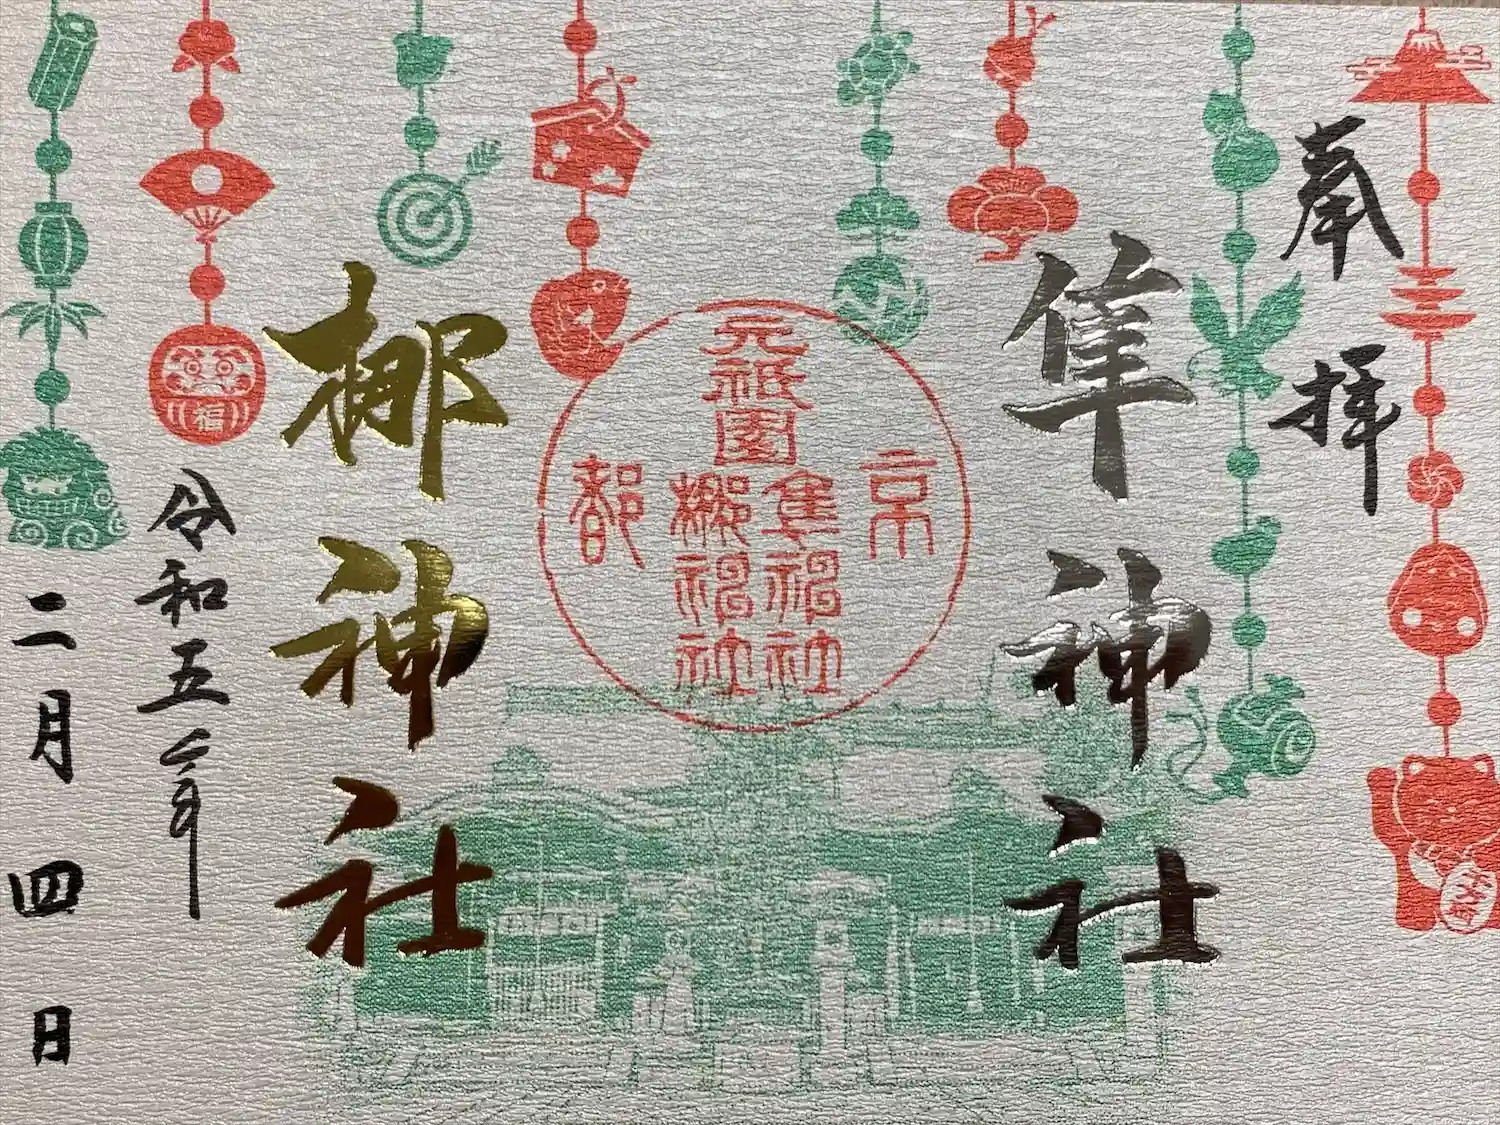 奉拝
隼神社
京
元祇園
隼神社
梛神社
都
梛神社
令和五年
二月四日
福